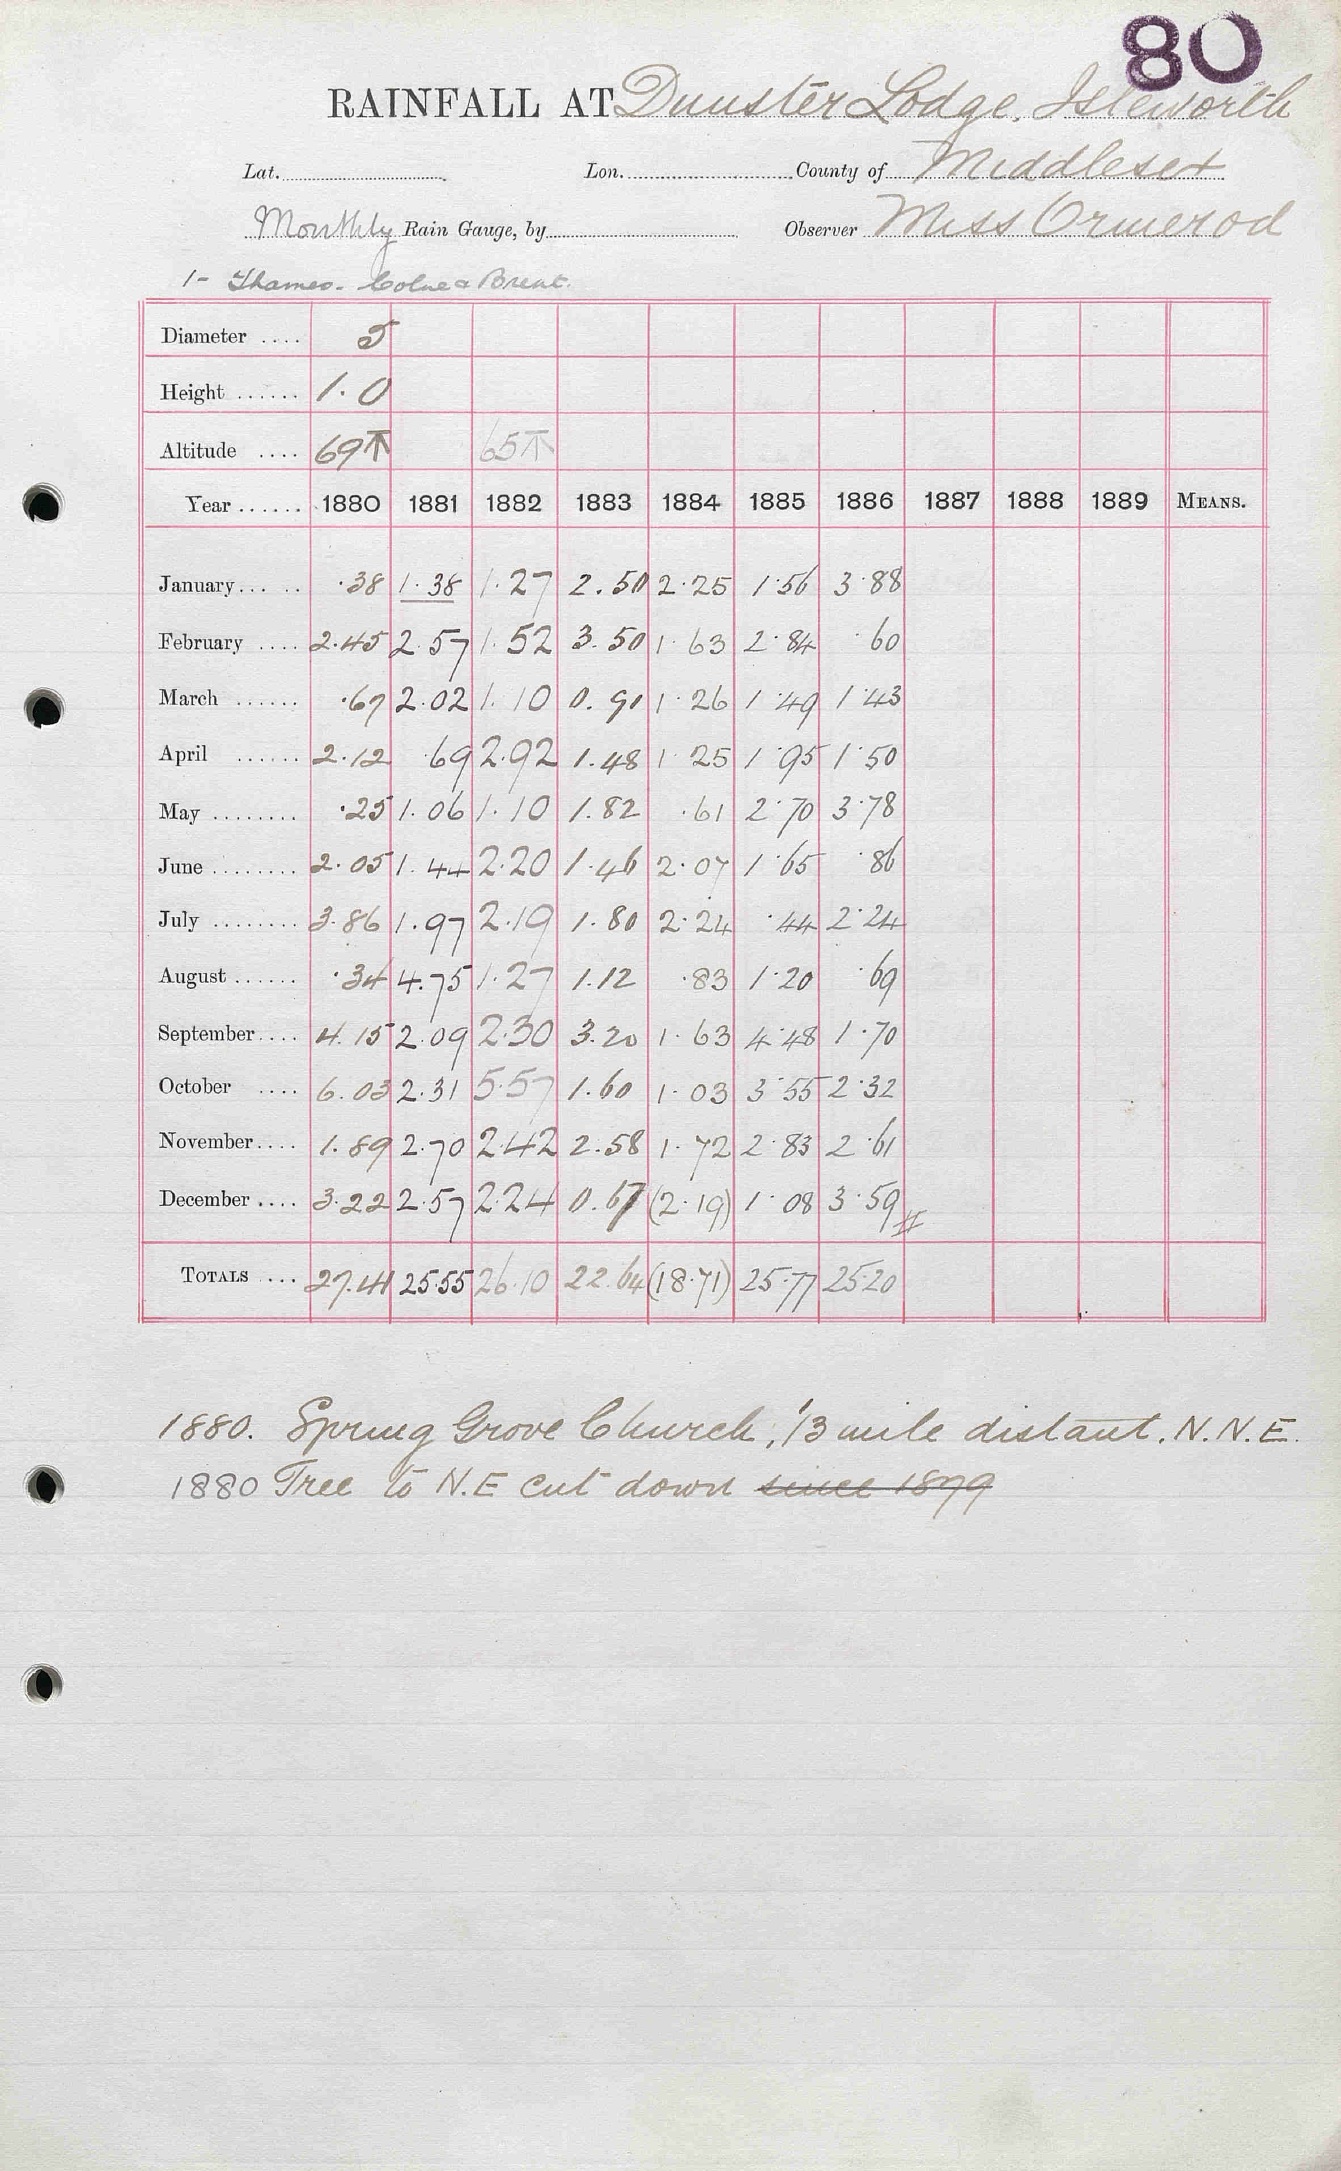 80
RAINFALL AT Dunster Lodge, Isleworth
Lat. Lon. County of Middlesex
Monthly Rain Gauge, by Observer Miss Ormerod
1- Thames. Colne & Brent.
Diameter .... 5
Height ...... 1.0
Altitude .... 69⊼ 65⊼
Year ...... 1880 1881 1882 1883 1884 1885 1886 1887 1888 1889 MEANS.
January... .. .38 1.38 1.27 2.50 2.25 1.56 3.88
February .... 2.45 2.57 1.52 3.50 1.63 2.84 .60
March ...... .67 2.02 1.10 0.91 1.26 1.49 1.43
April ...... 2.12 .69 2.92 1.48 1.25 1.95 1.50
May ........ .25 1.06 1.10 1.82 .61 2.70 3.78
June ........ 2.05 1.44 2.20 1.46 2.07 1.65 .86
July ........ 3.86 1.97 2.19 1.80 2.24 .44 2.24
August ...... .34 4.75 1.27 1.12 .83 1.20 .69
September.... 4.15 2.09 2.30 3.20 1.63 4.48 1.70
October .... 6.03 2.31 5.57 1.60 1.03 3.55 2.32
November.... 1.89 2.70 2.42 2.58 1.72 2.83 2.61
December .... 3.22 2.57 2.24 0.67 (2.19) 1.08 3.59 //
TOTALS ... 27.41 25.55 26.10 22.64 (18.71) 25.77 25.20
1880. Spring Grove Church, 1/3 mile distant. N.N.E.
1880 Tree to N.E cut down since 1879